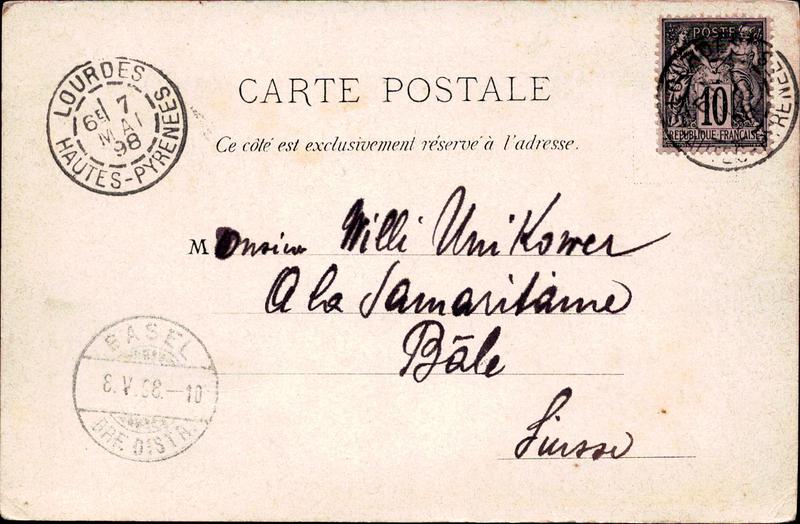 CARTE POSTALE
Ce côté est exclusivement réservé à l'adresse.
LOURDES
6E 7
MAI
98
HAUTES-PYRENEES
POSTES
10
REPUBLIQUE FRANÇAISE
Monsieur Willi UniKower
A la Samaritaine
Bâle
Suisse
BASEL
8.V.98.–10
BRF. DISTR.